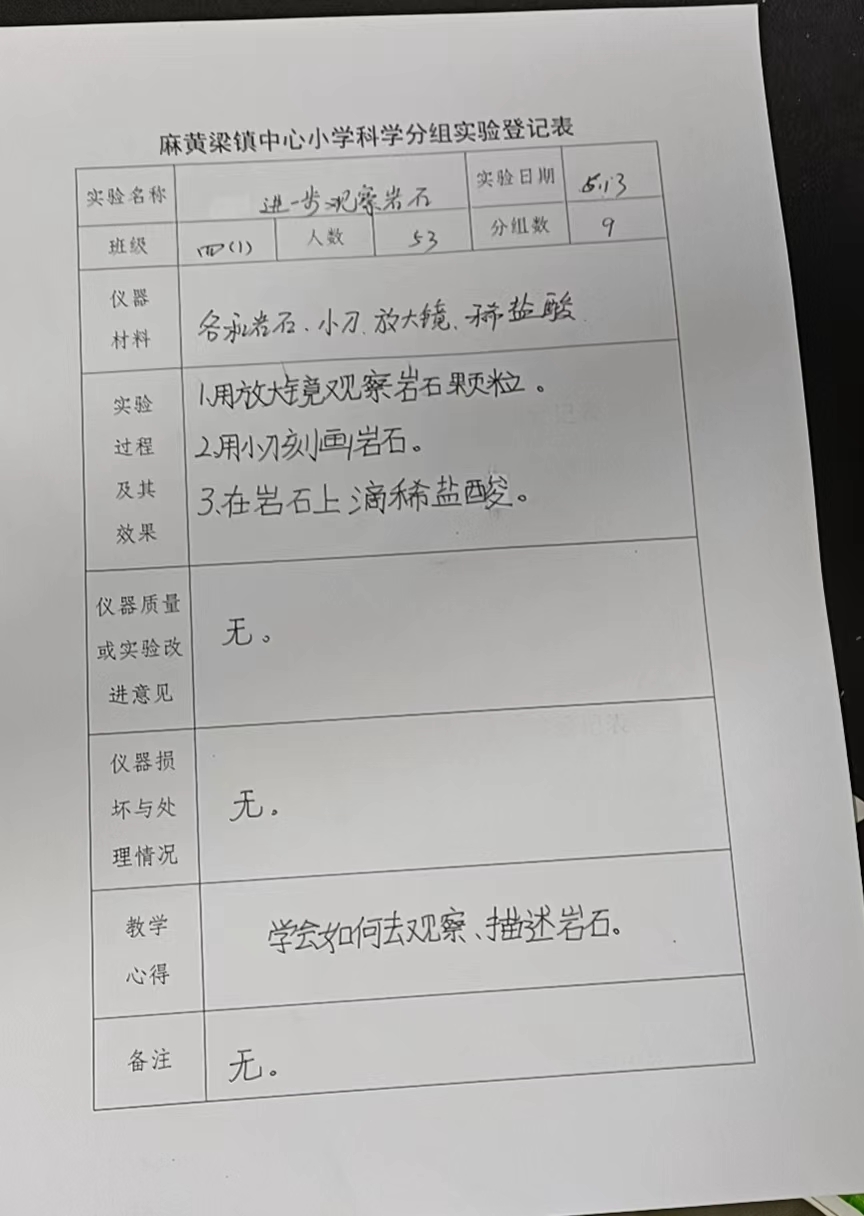 麻黄梁镇中心小学科学分组实验登记表
实验名称 进一步观察岩石 实验日期 5.13
班级 四(1) 人数 53 分组数 9
仪器
材料
各种岩石、小刀、放大镜、稀盐酸
实验
过程
及其
效果
1.用放大镜观察岩石颗粒。
2.用小刀刻画岩石。
3.在岩石上滴稀盐酸。
仪器质量
或实验改
进意见
无。
仪器损
坏与处
理情况
无。
教学
心得
学会如何去观察、描述岩石。
备注 无。